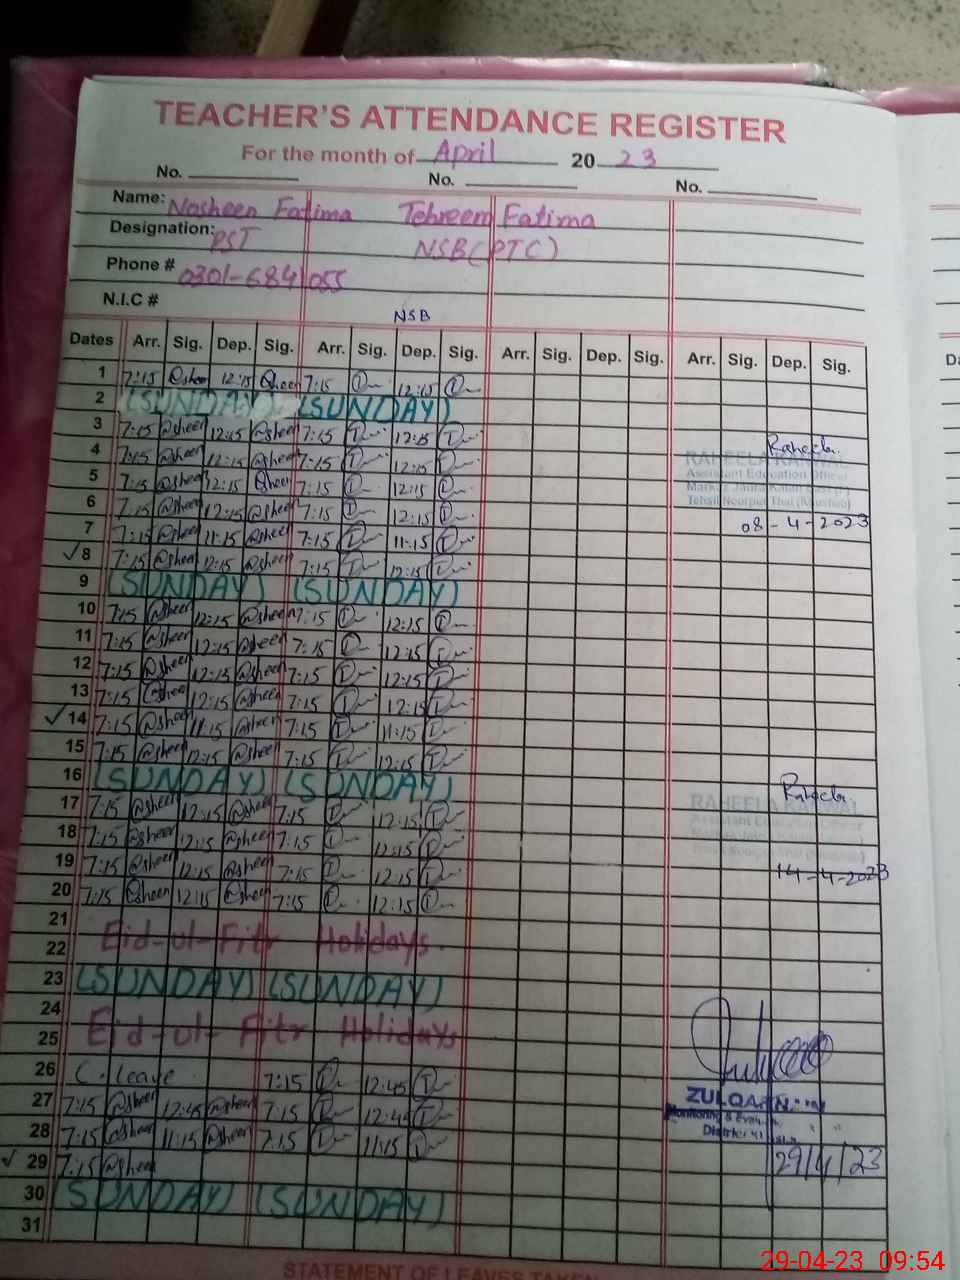 TEACHER'S ATTENDANCE REGISTER
For the month of April 2023
No. No. No.
Name: Nosheen Fatima Tehreem Fatima
Designation: PST NSB(PTC)
Phone # 0301-684 055
N.I.C #
NSB
Dates Arr. Sig. Dep. Sig. Arr. Sig. Dep. Sig. Arr. Sig. Dep. Sig. Arr. Sig. Dep. Sig.
1 7:15 12:15 7:15 12:15
2 (SUNDAY) (SUNDAY)
3 7:15 12:15 7:15 12:15
4 7:15 12:15 7:15 12:15
5 7:15 12:15 7:15 12:15
6 7:15 12:15 7:15 12:15
7 7:15 11:15 7:15 11:15
✓8 7:15 12:15 7:15 12:15
9 (SUNDAY) (SUNDAY)
10 7:15 12:15 7:15 12:15
11 7:15 12:15 7:15 12:15
12 7:15 12:15 7:15 12:15
13 7:15 12:15 7:15 12:15
✓14 7:15 11:15 7:15 11:15
15 7:15 12:15 7:15 12:15
16 (SUNDAY) (SUNDAY)
17 7:15 12:15 7:15 12:15
18 7:15 12:15 7:15 12:15
19 7:15 12:15 7:15 12:15
20 7:15 12:15 7:15 12:15
21
22 Eid-ul-Fitr Holidays.
23 (SUNDAY) (SUNDAY)
24
25 Eid-ul-Fitr Holidays
26 C. Leave 7:15 12:45
27 7:15 12:45 7:15 12:45
28 7:15 11:15 7:15 11:15
✓ 29 7:15
30 (SUNDAY) (SUNDAY)
31
Raheela
RAHEELA KANWAL
Assistant Education Officer
08-4-2023
Raheela
RAHEELA KANWAL
Assistant Education Officer
14-4-2023
Monitoring &
District
29/4/23
STATEMENT OF LEAVES TAKEN
29-04-23 09:54